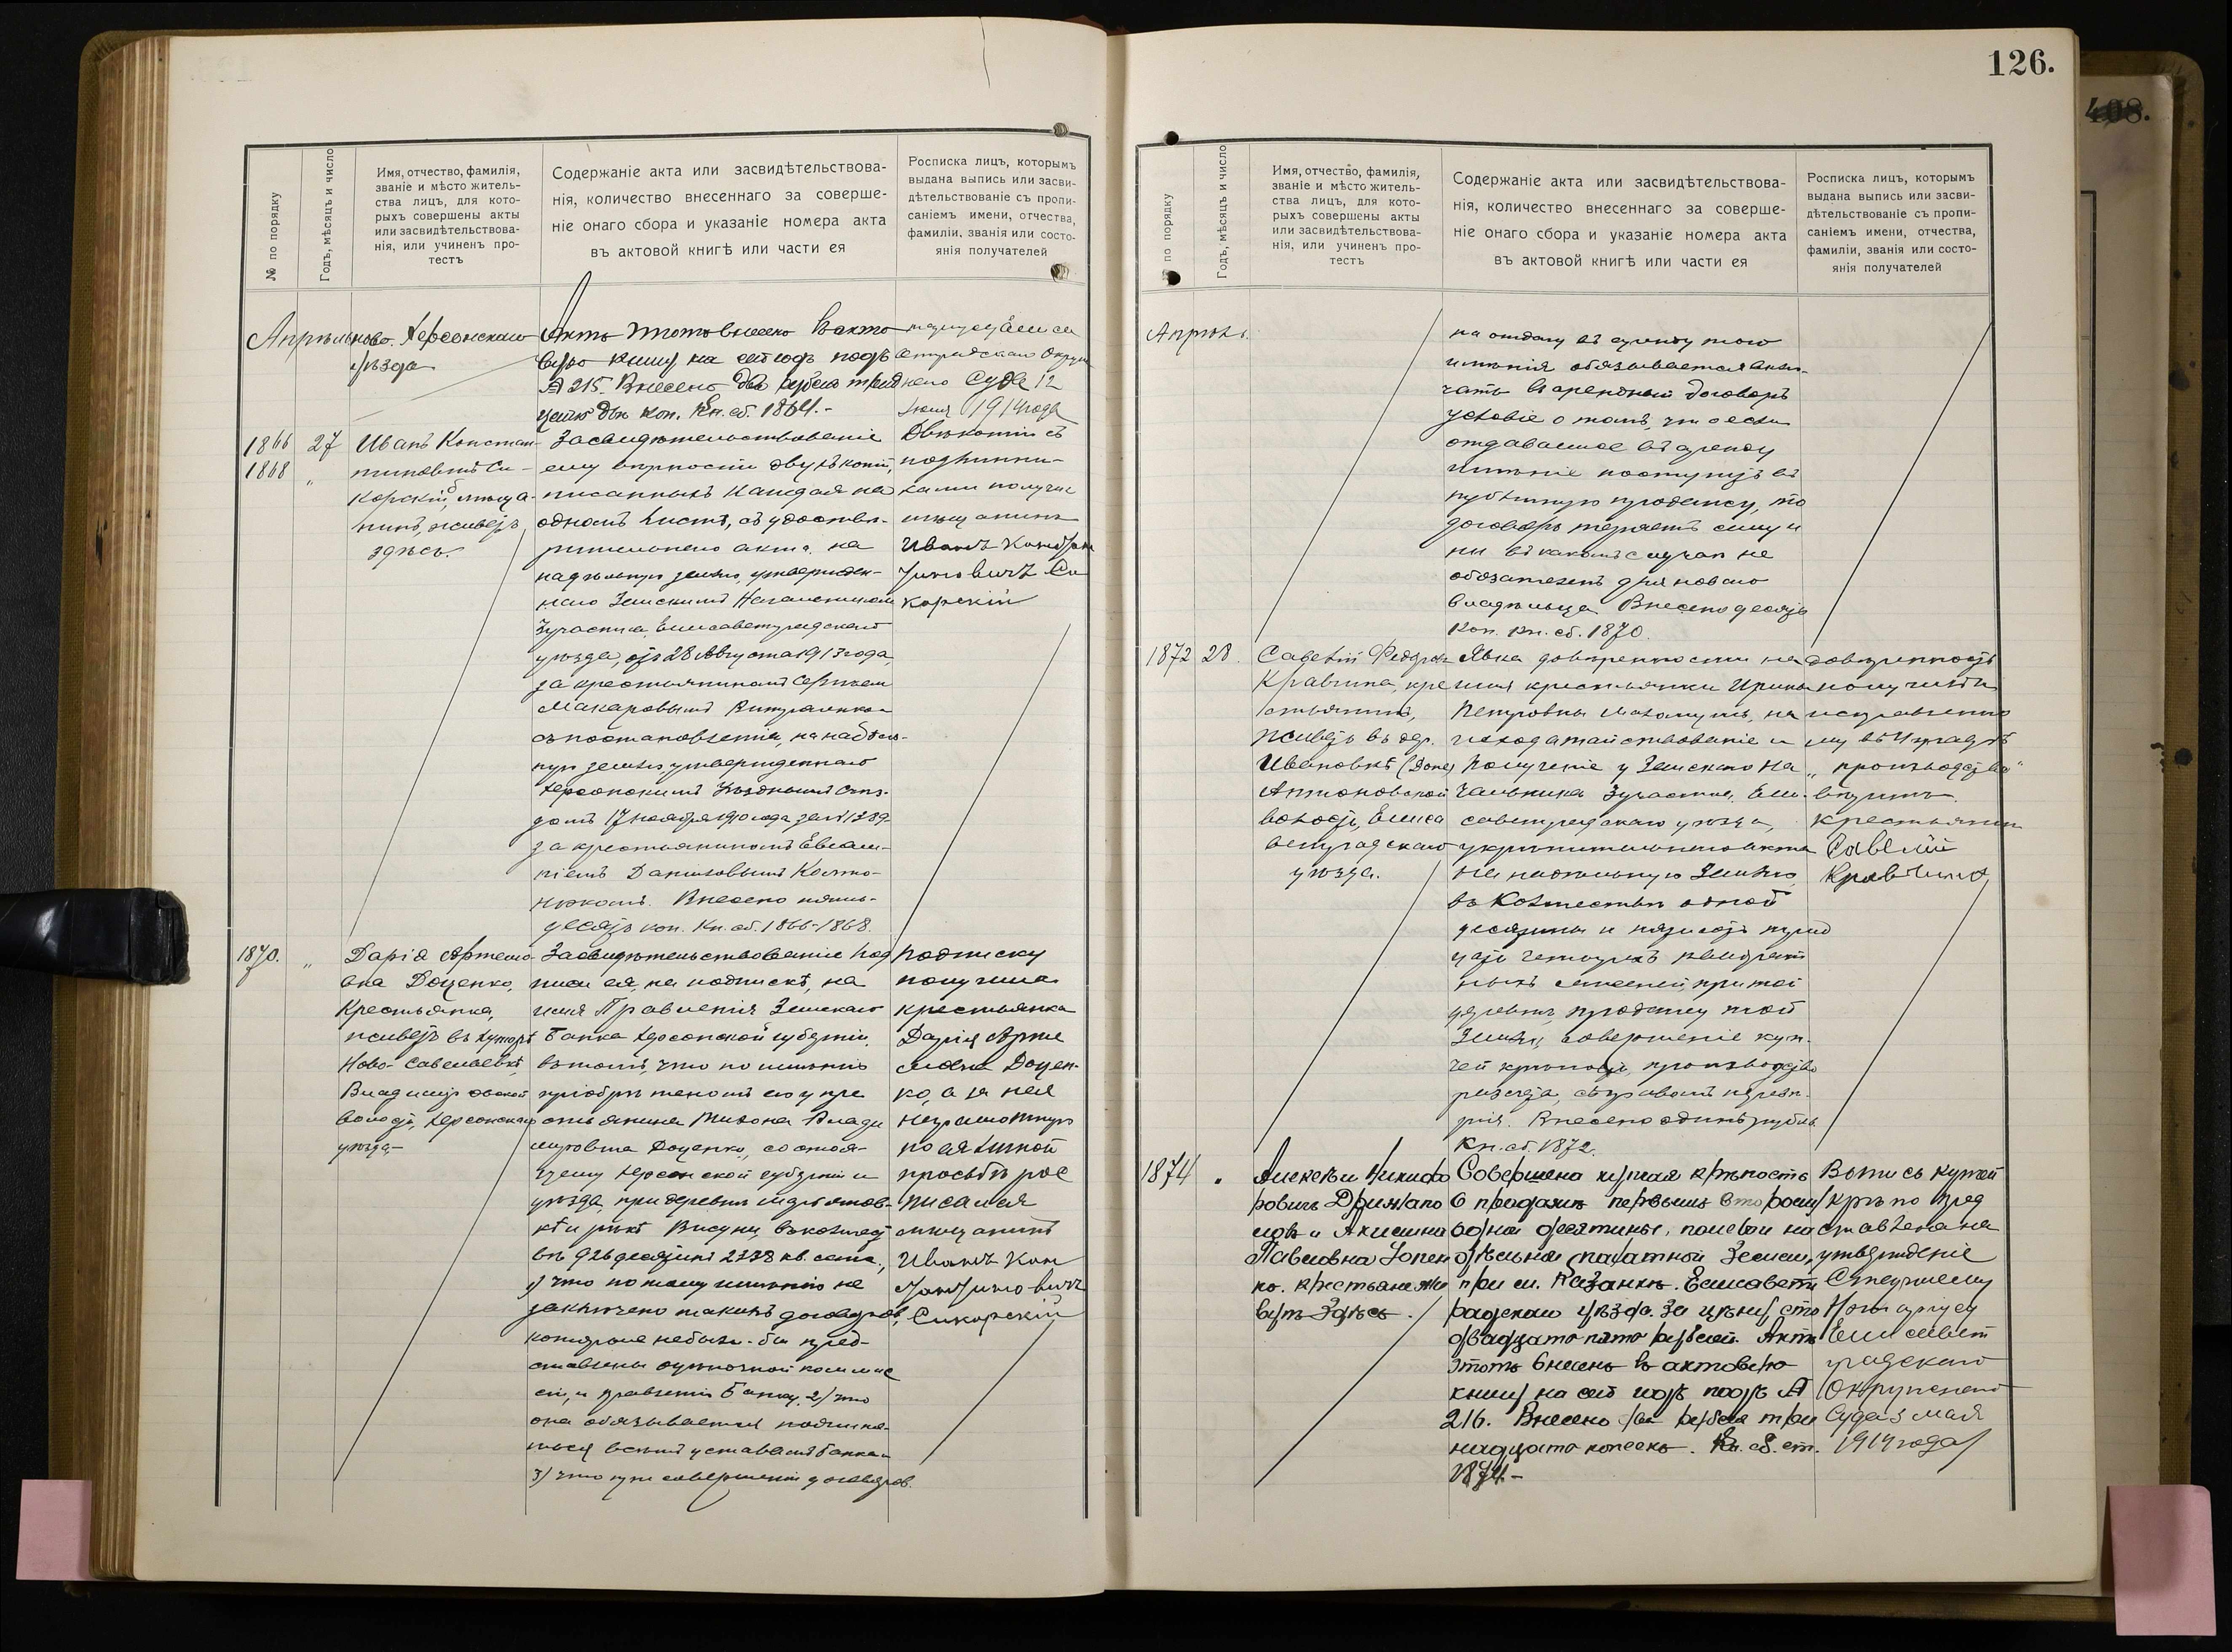 126.
408.
№ по порядку
Годъ, мѣсяцъ и число
Имя, отчество, фамилія,
званіе и мѣсто житель-
ства лицъ, для кото-
рыхъ совершены акты
или засвидѣтельствова-
нія, или учиненъ про-
тестъ
Содержаніе акта или засвидѣтельствова-
нія, количество внесеннаго за соверше-
ніе онаго сбора и указаніе номера акта
въ актовой книгѣ или части ея
Росписка лицъ, которымъ
выдана выпись или засви-
дѣтельствованіе съ пропи-
саніемъ имени, отчества,
фамиліи, званія или состо-
янія получателей
Апрѣль
Херсонскаго
уѣзда
Актъ этотъ внесенъ въ акто-
вую книгу на сей годъ подъ
№ 215. Внесено два рубля трид
цать двѣ коп. Кн. сб. 1864.-
Суда 12
1914 года
1866
1868
27
„
Иванъ Констан-
тиновичъ Си-
корскій, мѣща-
нинъ, живетъ
здѣсь.
Засвидѣтельствованіе
ему вѣрности двухъ копій,
писанныхъ каждая на
одномъ листѣ, съ удостовѣ-
рительнаго акта на
надѣльную землю, утвержден-
наго Земскимъ Начальникомъ
3 участка, Елисаветградскаго
уѣзда, отъ 28 Августа 1913 года,
за крестьяниномъ Сергѣемъ
Макаровымъ
съ постановленія, на надѣль-
ную землю, утвержденнаго
Херсонскимъ Уѣзднымъ Съѣз-
домъ 17 ноября 1910 года за № 1289
за крестьяниномъ Евлам-
піемъ Даниловымъ
Внесено пять-
десятъ коп. Кн. сб. 1866-1868.
Двѣ копіи съ
подлинни-
ками получилъ
мѣщанинъ
Иванъ Констан
тиновичъ Си
корскій
1870.
„
Дарія Артемо-
вна Доценко,
крестьянка,
живетъ въ хуторѣ
Ново-Савельевкѣ,
Владиміровской
волости, Херсонскаго
уѣзда.-
Засвидѣтельствованіе под
писи ея, на подпискѣ, на
имя Правленія Земскаго
Банка Херсонской губерніи,
въ томъ, что по имѣнію
пріобрѣтенному ею у кре
стьянина Милона Влади
мировича Доценко, состоя-
щему Херсонской губерніи и
уѣзда, при деревнѣ
кѣ и рѣкѣ Висуни, въ количест
вѣ 926 десятинъ 2388 кв. саж.,
1) что по тому имѣнію не
заключено такихъ договоровъ,
которые не были-бы пред-
ставлены оцѣночной коммис
сіи, и правленію Банка, 2) что
она обязывается подчиня-
ться всѣмъ уставамъ Банка и
3) что при совершеніи договоровъ
Подписку
получила
крестьянка
Дарія Арте
мовна Доцен-
ко, а за нея
неграмотную
по ея личной
просьбѣ рос
писался
мѣщанинъ
Иванъ Кон
стантиновичъ
Сикорскій
№ по порядку
Годъ, мѣсяцъ и число
Имя, отчество, фамилія,
званіе и мѣсто житель-
ства лицъ, для кото-
рыхъ совершены акты
или засвидѣтельствова-
нія, или учиненъ про-
тестъ
Содержаніе акта или засвидѣтельствова-
нія, количество внесеннаго за соверше-
ніе онаго сбора и указаніе номера акта
въ актовой книгѣ или части ея
Росписка лицъ, которымъ
выдана выпись или засви-
дѣтельствованіе съ пропи-
саніемъ имени, отчества,
фамиліи, званія или состо-
янія получателей
Апрѣль.
на отдачу въ аренду того
имѣнія обязывается вклю-
чать въ арендный договоръ
условіе о томъ, что если
отдаваемое въ аренду
имѣніе поступитъ въ
публичную продажу, то
договоръ теряетъ силу и
ни въ какомъ случаѣ не
обязателенъ для новаго
владѣльца. Внесено десять
коп. Кн. сб. 1870.
1872
28.
Савелій Федоров.
Кравчина, кре
стьянинъ,
живетъ въ дер.
Ивановкѣ
Антоновской
волости, Елиса
ветградскаго
уѣзда.
Явка довѣренности на
имя крестьянки Ирины
Петровны на
исходатайствованіе и
полученіе у Земскаго На
чальника 3 участка, Ели-
саветградскаго уѣзда,
укрѣпительнаго акта
на надѣльную землю
въ количествѣ одной
десятины и
четырехъ квадрат
ныхъ саженей, при той
деревнѣ, продажу той
земли, совершеніе куп-
чей крѣпости, производство
разсчета, съ правомъ передов-
рія. Внесено одинъ рубль.
Кн. сб. 1872.
Довѣренность
получилъ
въ
„производства"
крестьянинъ
Савелій
Кравчина
1874
„
Алексѣй Никифо
ровичъ
и Акилина
Павловна
ко, крестьяне, жи
вутъ здѣсь.
Совершена купчая крѣпость
о продажѣ первымъ второму
одной десятины, полевой на
дѣльной пахатной земли,
при м. Казанкѣ, Елисавет
радскаго уѣзда. За цѣну сто
двадцать пять рублей. Актъ
этотъ внесенъ въ актовую
книгу на сей годъ подъ №
216. Внесено два рубля три
надцать копеекъ. Кн. сб. ст.
1874.-
Выпись купчей
крѣпо пред
ставлена на
утвержденіе
Старшему
Нотаріусу
Елисавет
градскаго
Окружнаго
Суда 3 мая
1914 года